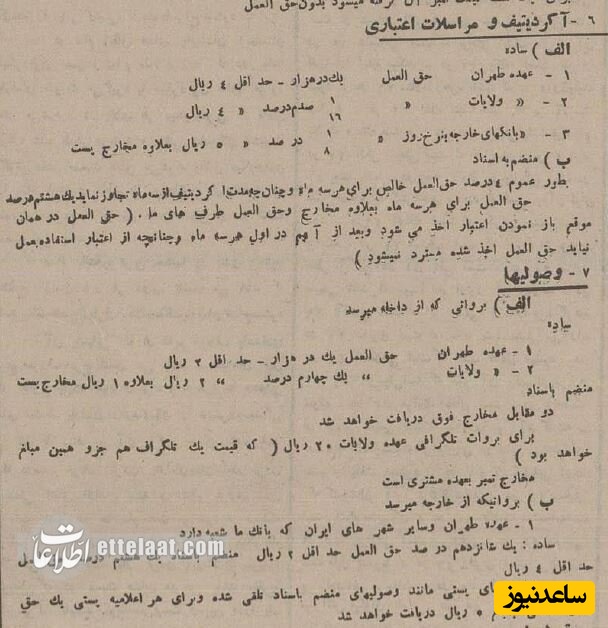 بدون حق العمل
۶ - آکردیتیف و مراسلات اعتباری
الف) ساده
۱ - عهده طهران حق العمل یك در هزار - حد اقل ۴ ریال
۲ - « ولایات « ۱/۱۶ صدم درصد « ۴ ریال
۳ - « بانکهای خارجه بنرخ روز « ۱/۸ در صد « ۵ ریال بعلاوه مخارج پست
ب) منضم به اسناد
بطور عموم ۴ درصد حق العمل خالص برای هر سه ماه و چنانچه مدت اکردیتیف از سه ماه تجاوز نماید یك هشتم درصد
حق العمل برای هر سه ماه بعلاوه مخارج وحق العمل طرف های ما . ( حق العمل در همان
موقع باز نمودن اعتبار اخذ می شود وبعد از آنهم در اول هر سه ماه وچنانچه از اعتبار استفاده بعمل
نیاید حق العمل اخذ شده مسترد نمیشود )
۷ - وصولیها
الف) برواتی که از داخله میرسد
ساده
۱ - عهده طهران حق العمل یك در هزار - حد اقل ۳ ریال
۲ - « ولایات „ یك چهارم درصد „ ۲ ریال بعلاوه ۱ ریال مخارج پست
منضم باسناد
دو مقابل مخارج فوق دریافت خواهد شد
برای بروات تلگرافی عهده ولایات ۲۰ ریال ( که قیمت یك تلگراف هم جزو همین مبلغ
خواهد بود )
مخارج تمبر بعهده مشتری است
ب) برواتیکه از خارجه میرسد
۱ - عهده طهران وسایر شهر های ایران که بانك ما شعبه دارد
ساده : یك شانزدهم در صد حق العمل حد اقل ۲ ریال منضم باسناد یك هشتم درصد حق العمل
حد اقل ۴ ریال
های پستی مانند وصولیهای منضم باسناد تلقی شده وبرای هر اعلامیه پستی یك حق
۵ ریال دریافت خواهد شد
اطلاعات ettelaat.com
ساعدنیوز